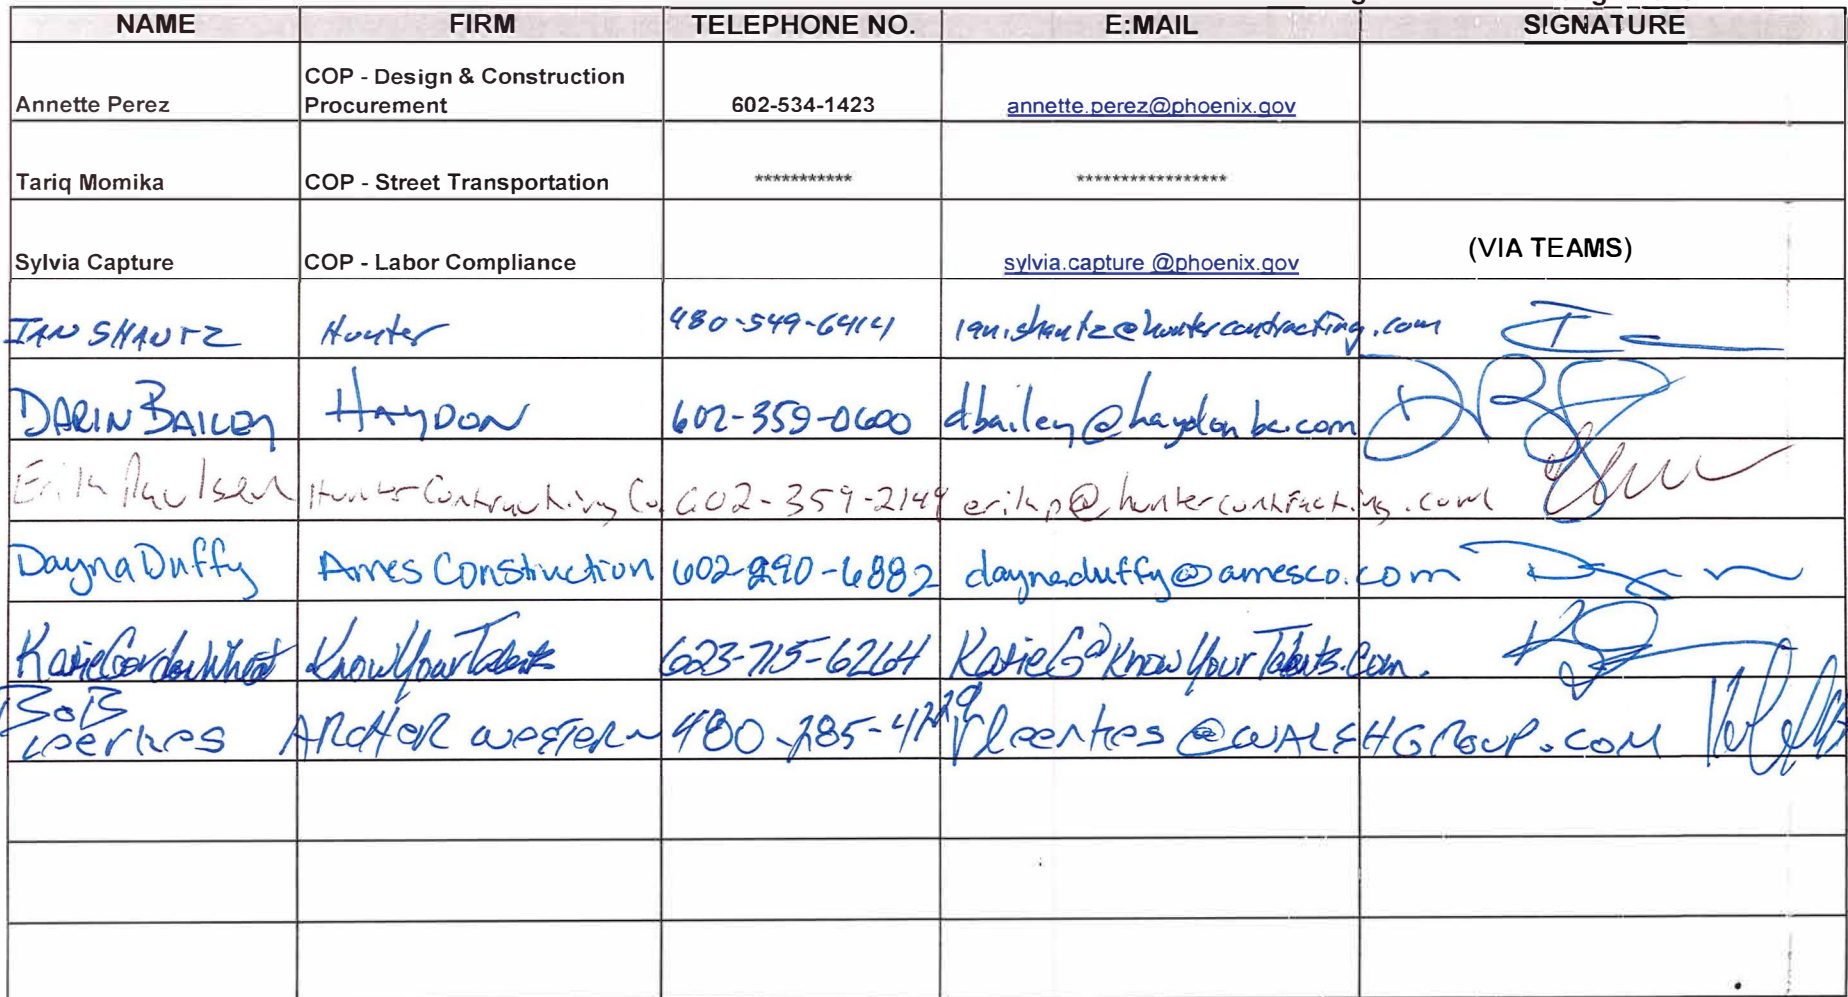 NAME FIRM TELEPHONE NO. E:MAIL SIGNATURE
COP - Design & Construction
Annette Perez Procurement 602-534-1423 annette.perez@phoenix.gov
Tariq Momika COP - Street Transportation *********** *****************
Sylvia Capture COP - Labor Compliance sylvia.capture @phoenix.gov (VIA TEAMS)
IAN SHANTZ Hunter 480-549-6414 ian.shantz@huntercontracting.com
DARIN BAILEY HAYDON 602-359-0600 dbailey@haydonbc.com
Erik Paulsen Hunter Contracting Co. 602-359-2149 erikp@huntercontracting.com
Dayna Duffy Ames Construction 602-290-6882 daynaduffy@amesco.com
Katie Gordon Wheat Know Your Talents 623-715-6264 KatieG@KnowYourTalents.com.
BOB
Leerkes ARCHER WESTERN 480-285-4729 rleerkes@WALSHGROUP.COM